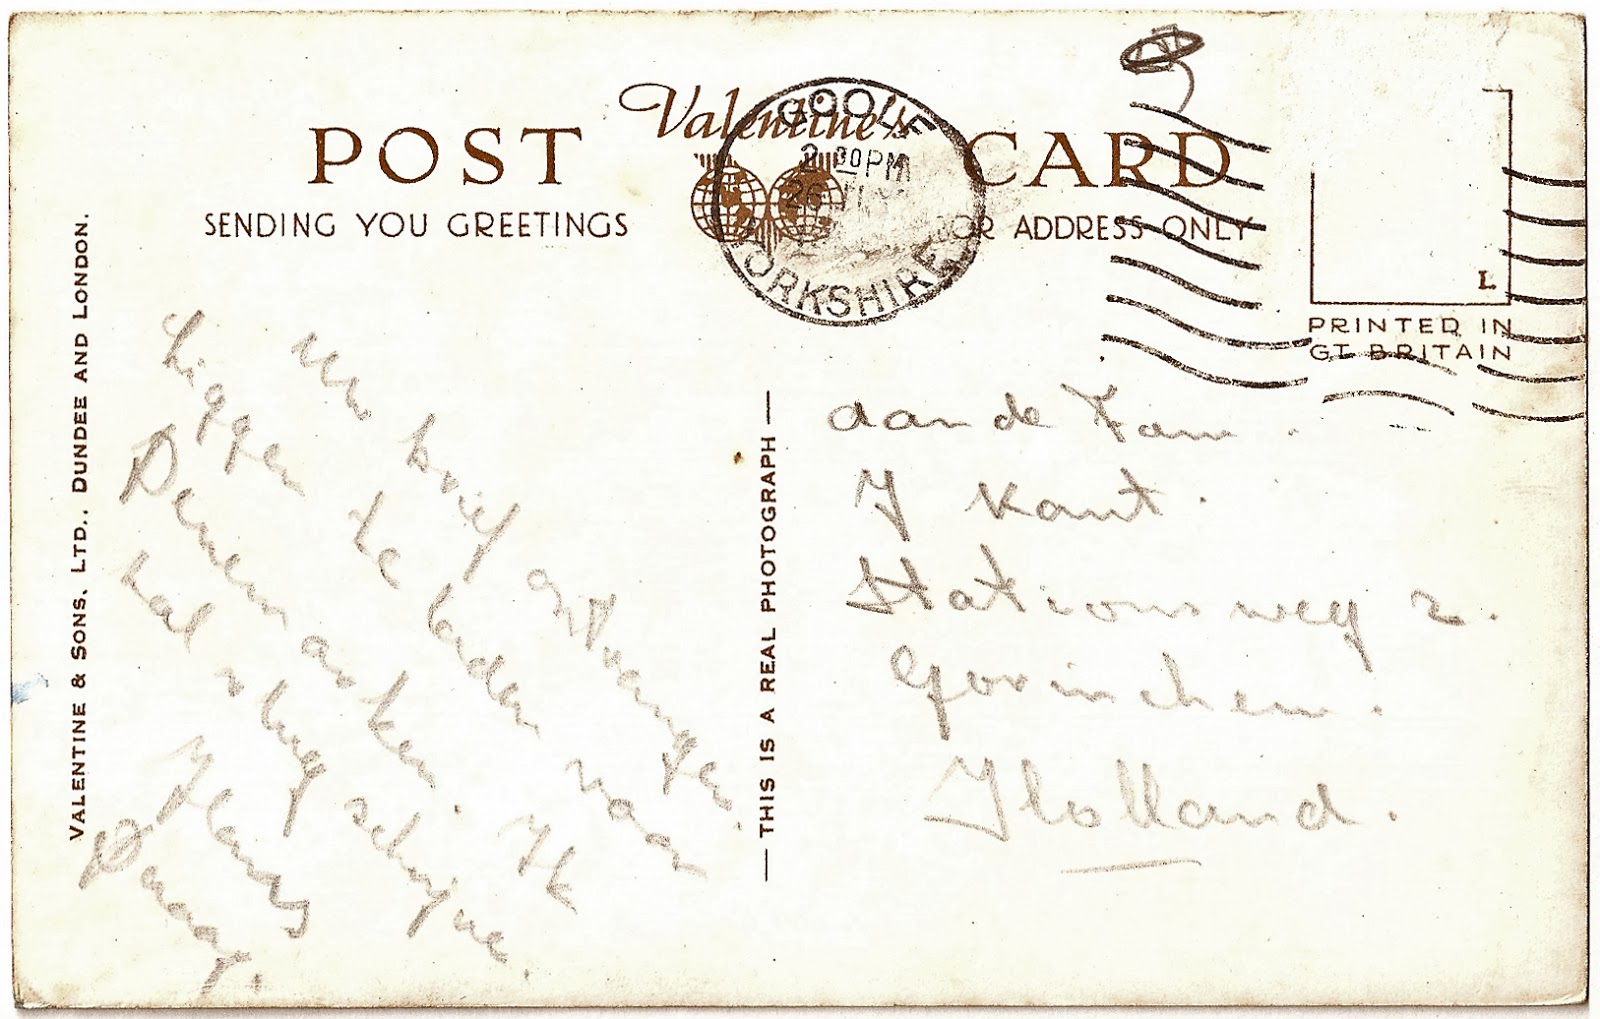 Valentine's
POST CARD
SENDING YOU GREETINGS
FOR ADDRESS ONLY
GOOLE
2 30 PM
26
YORKSHIRE
L.
PRINTED IN
GT BRITAIN
VALENTINE & SONS, LTD., DUNDEE AND LONDON.
THIS IS A REAL PHOTOGRAPH
Uw brief ontvangen.
Liggen te laden voor
Denemarken. Ik
zal nog schrijven.
Hans
Daag.
aan de Fam.
J Kant.
Stationsweg 2.
Gorinchem.
Holland.